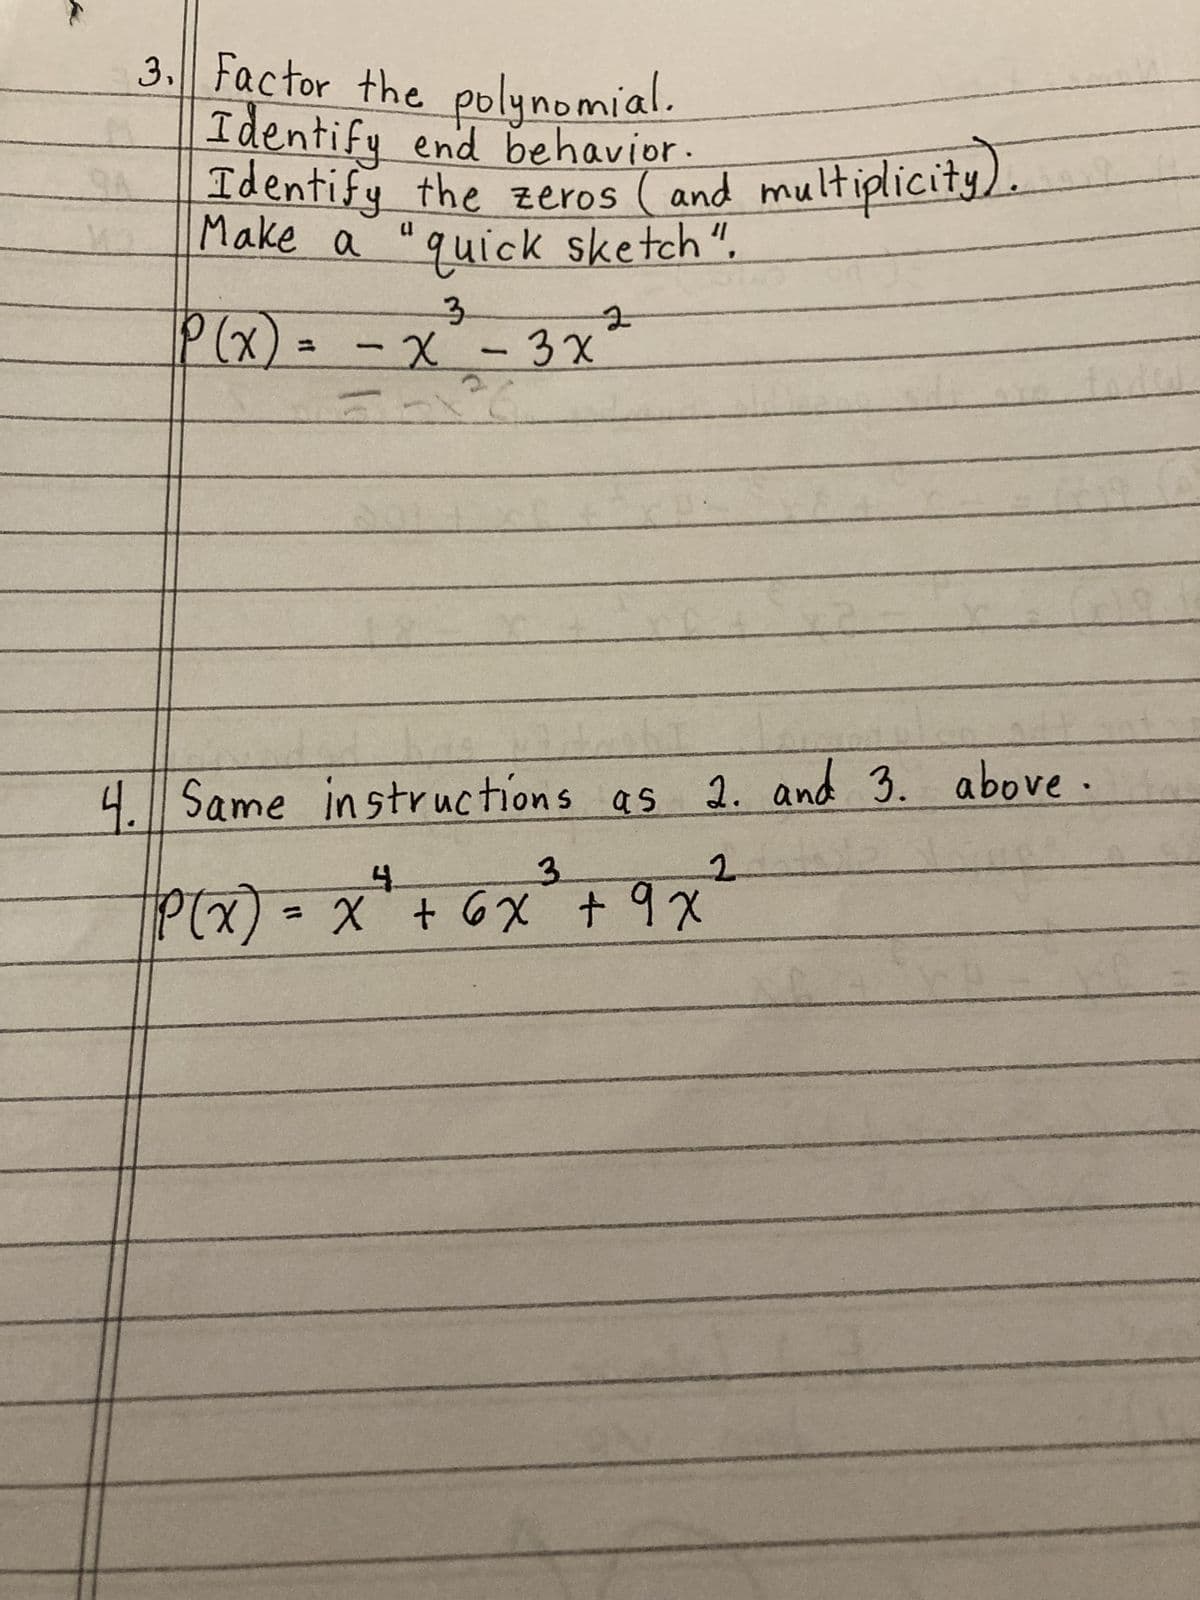 3. Factor the polynomial.
Identify end behavior.
Identify the zeros (and multiplicity).
Make a "quick sketch".
P(x) = - x³ - 3x²
4. Same instructions as 2. and 3. above.
P(x) = x⁴ + 6x³ + 9x²